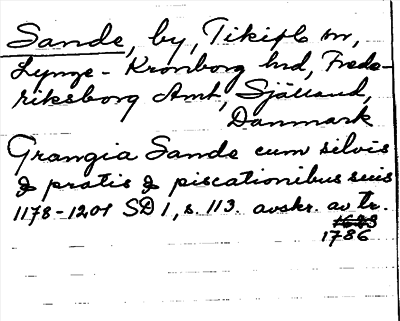 Sande, by, Tikipb sn,
Lynge-Kronborg hrd, Frede-
riksborg Amt, Själland,
Danmark
Grangia Sande cum silvis
& pratis & piscationibus suis
1178-1201 SD 1, s. 113. avskr. av tr.
1786